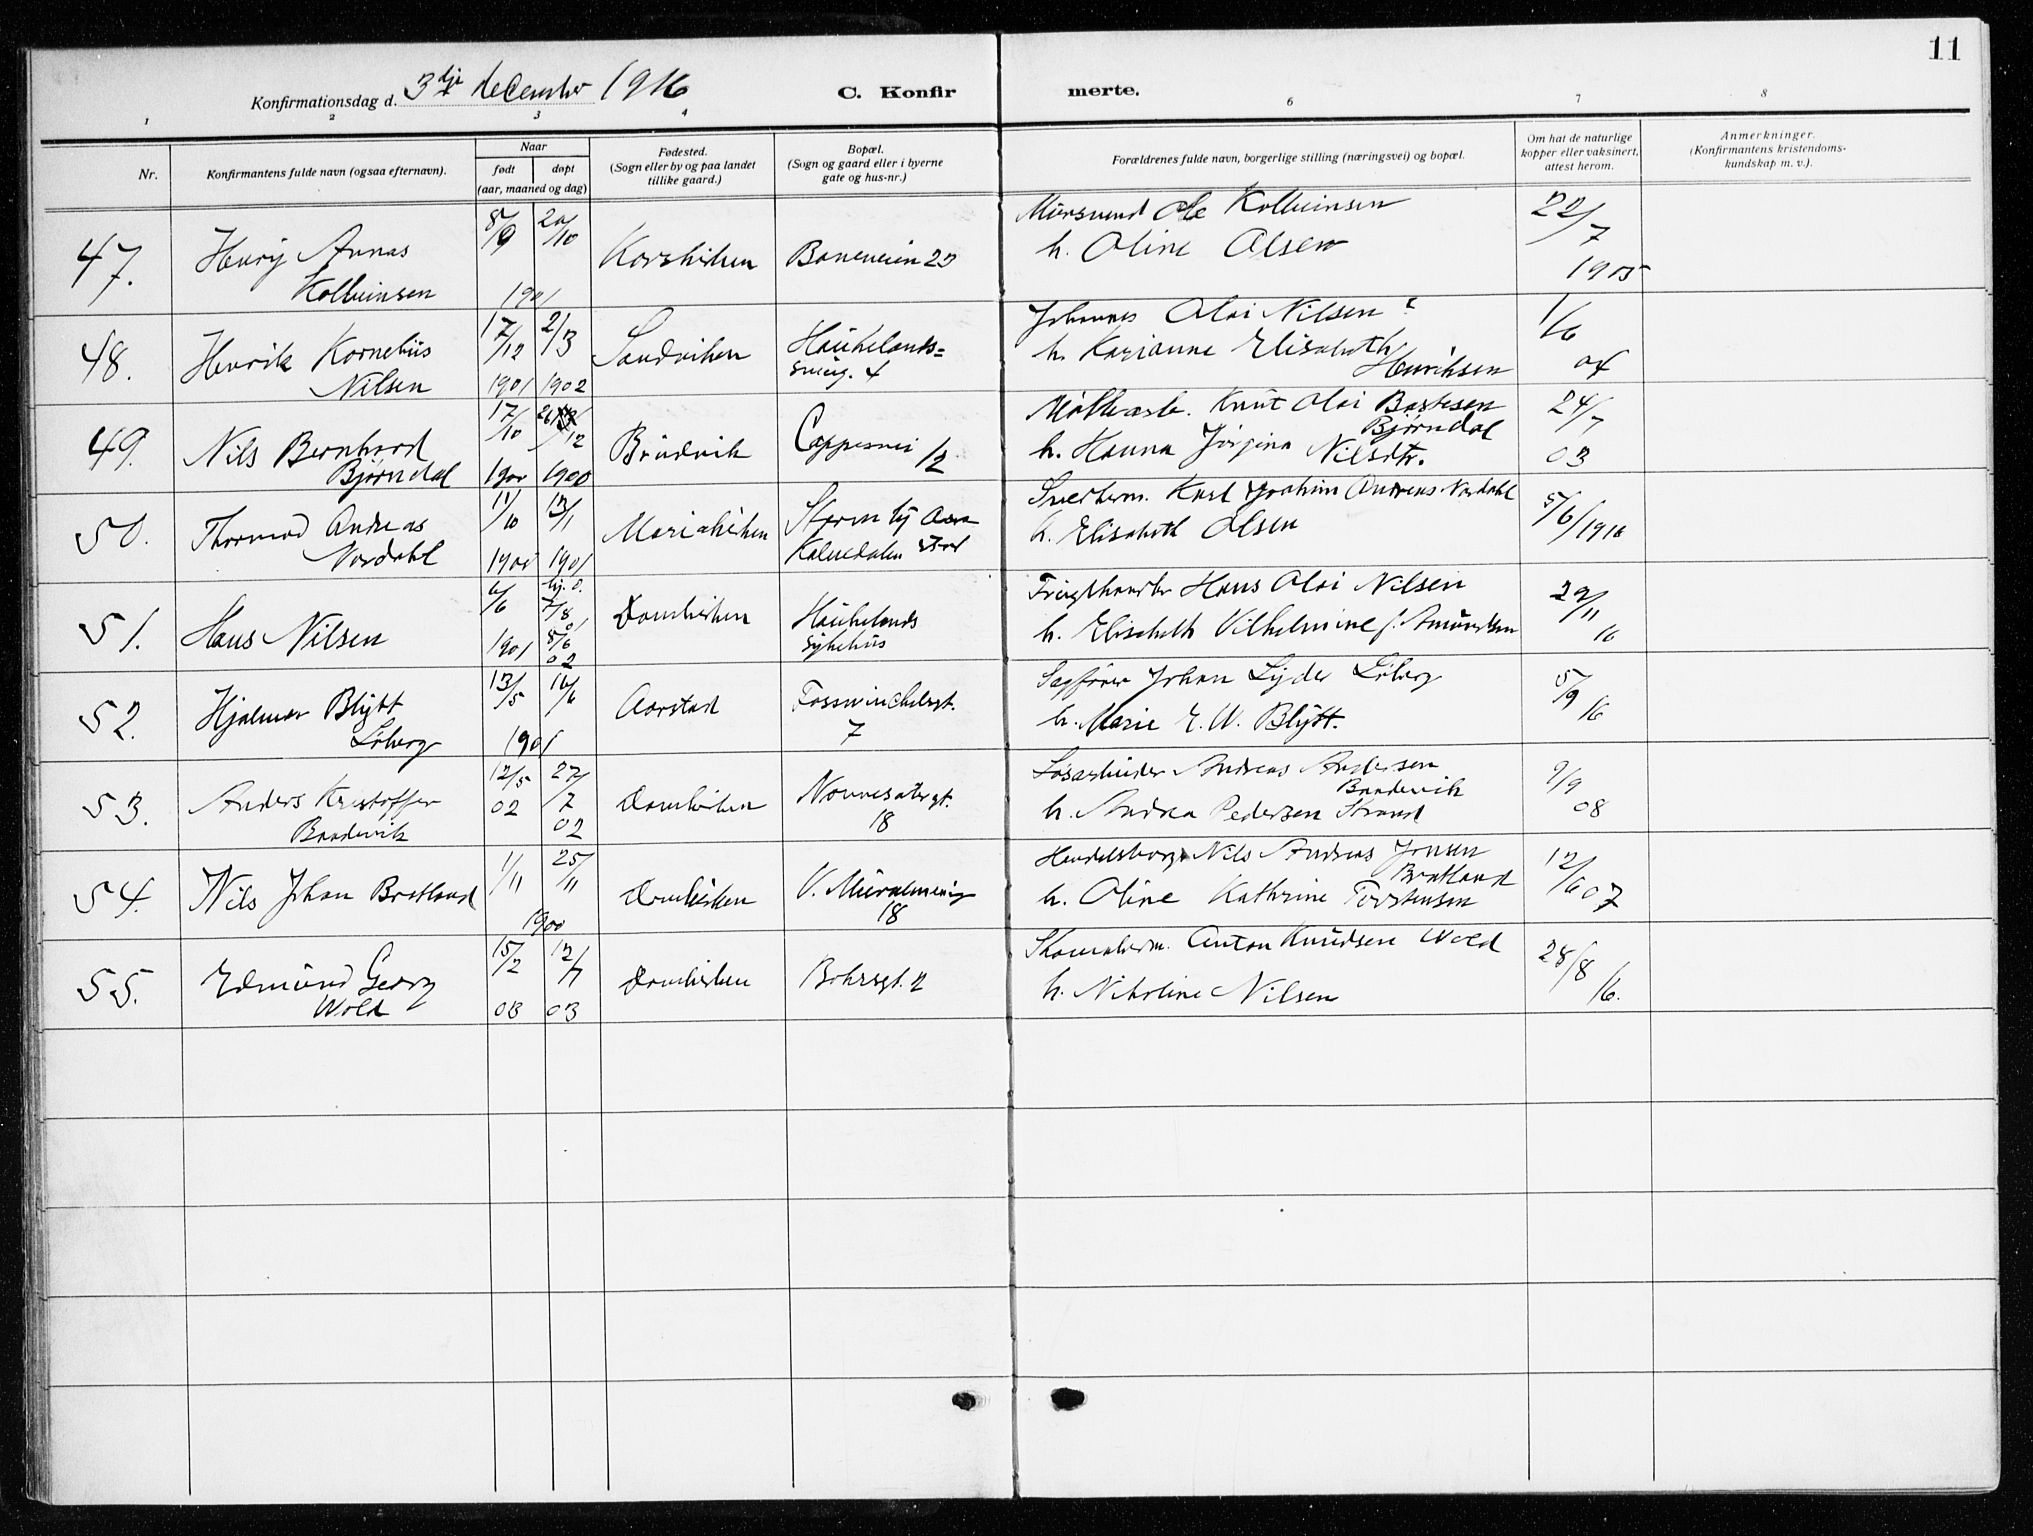 11
Konfirmationsdag d. 3dje december 1916
C. Konfir merte.
1 2 3 4 6 7 8
Nr.
Konfirmantens fulde navn (ogsaa efternavn).
Naar
født døpt
(aar, maaned og dag)
Fødested.
(Sogn eller by og paa landet
tillike gaard.)
Bopæl.
(Sogn og gaard eller i byerne
gate og hus-nr.)
Forældrenes fulde navn, borgerlige stilling (næringsvei) og bopæl.
Om hat de naturlige
kopper eller vaksinert,
attest herom.
Anmerkninger.
(Konfirmantens kristendoms-
kundskap m. v.).
47.
Henry
Kolbeinsen
8/9 20/10
1901
Korskirken
Baneveien
Mursvend Ole Kolbeinsen
h. Oline Olsen
22/7
48.
Henrik Kornelius
Nilsen
17/12 2/3
1901 1902
Sandviken
Haukelands=
smug. 4
Johannes Olai Nilsen
h. Karianne Elisabeth
Henriksen
1/6
04
49.
Nils Bernhard
Bjørndal
17/10
/12
1900 1900
Bruvik
12
Møllearb. Knut Olai Bastesen
Bjørndal
h. Hanna Jørgine Nilsdtr.
24/7
03
50.
Thormod Andreas
Nordahl
11/10 13/1
1900 1901
Mariakirken
Kalvedalen
Snedkerm. Karl Joakim Andreas Nordahl
h. Elisabeth Olsen
5/6/1916
51.
Hans Nilsen
6/6 hj. d.
7/8
01
1901 8/6
02
Domkirken
Haukelands
sykehus
Frugthandler Hans Olai Nilsen
h. Elisabeth Vilhelmine f. Amundsen
29/11
16
52.
Hjalmar Blytt
Løberg
13/5 16/6
1901
Aarstad
Fosswinckelsgt.
7
Sagfører Johan Lyder Løberg
h. Marie E. W. Blytt.
5/9 16
53.
Anders Kristoffer
Baadsvik
12/5 27/7
02 02
Domkirken
Nonnesetergt.
18
Løsarbeider Andreas Andersen
Baadsvik
h. Andrea Pedersen Strand
9/9
08
54.
Nils Johan Bratland
1/11 25/11
1900
Domkirken
V. Muralmenig
18
Handelsborger Nils Andreas Jonsen
Bratland
h. Oline Kathrine Torstensen
12/6 07
55.
Edmund Georg
Wold
15/2 12/7
03 03
Domkirken
Bohrsgt. 2
Skomakerm. Anton Knudsen Wold
h. Nikoline Nilsen
28/8 16.